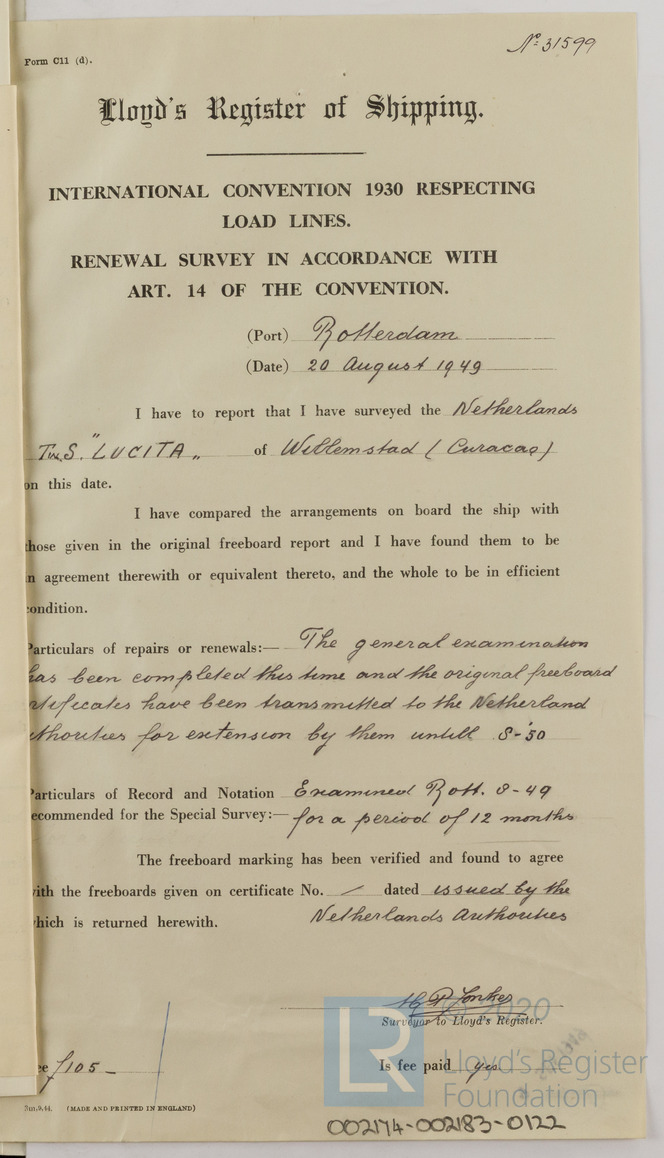 Nº 31599
Form C11 (d).
Lloyd's Register of Shipping.
INTERNATIONAL CONVENTION 1930 RESPECTING
LOAD LINES.
RENEWAL SURVEY IN ACCORDANCE WITH
ART. 14 OF THE CONVENTION.
(Port) Rotterdam
(Date) 20 August 1949
I have to report that I have surveyed the Netherlands
S. "LUCITA" of Willemstad (Curacao)
on this date.
I have compared the arrangements on board the ship with
those given in the original freeboard report and I have found them to be
in agreement therewith or equivalent thereto, and the whole to be in efficient
condition.
Particulars of repairs or renewals:— The general examination
has been completed this time and the original freeboard
rtificates have been transmitted to the Netherland
thorities for extension by them untill 8-'50
Particulars of Record and Notation Examined Rott. 8-49
recommended for the Special Survey:— for a period of 12 months
The freeboard marking has been verified and found to agree
with the freeboards given on certificate No. / dated issued by the
which is returned herewith. Netherlands Authorities
Surveyor to Lloyd's Register.
ee ƒ105- Is fee paid yes
3m,9,44. (MADE AND PRINTED IN ENGLAND)
© 2020
LR
Lloyd's Register
Foundation
002174-002183-0122